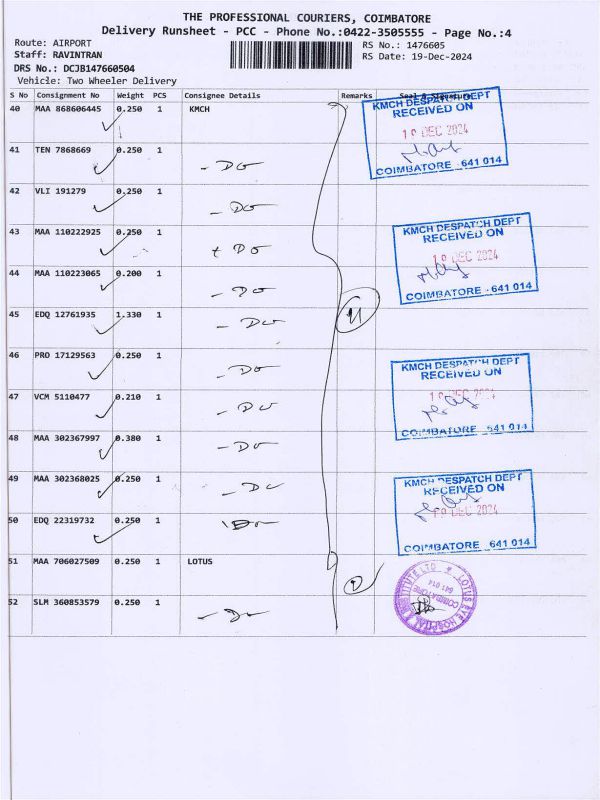 THE PROFESSIONAL COURIERS, COIMBATORE
Delivery Runsheet - PCC - Phone No.:0422-3505555 - Page No.:4
Route: AIRPORT
RS No.: 1476605
Staff: RAVINTRAN
RS Date: 19-Dec-2024
DRS No.: DCJB147660504
Vehicle: Two Wheeler Delivery
S No Consignment No Weight PCS Consignee Details Remarks Seal & Signature
40 MAA 868606445 0.250 1 KMCH
41 TEN 7868669 0.250 1 - DO
42 VLI 191279 0.250 1 - DO
43 MAA 110222925 0.250 1 - DO
44 MAA 110223065 0.200 1 - DO
45 EDQ 12761935 1.330 1 - DO
46 PRO 17129563 0.250 1 - DO
47 VCM 5110477 0.210 1 - DO
48 MAA 302367997 0.380 1 - DO
49 MAA 302368025 0.250 1 - DO
50 EDQ 22319732 0.250 1 - DO
51 MAA 706027509 0.250 1 LOTUS
52 SLM 360853579 0.250 1 - DO
11
2
KMCH DESPATCH DEPT
RECEIVED ON
19 DEC 2024
COIMBATORE - 641 014
KMCH DESPATCH DEPT
RECEIVED ON
19 DEC 2024
COIMBATORE - 641 014
KMCH DESPATCH DEPT
RECEIVED ON
19 DEC 2024
COIMBATORE - 641 014
KMCH DESPATCH DEPT
RECEIVED ON
19 DEC 2024
COIMBATORE 641 014
LOTUS EYE HOSPITAL
INSTITUTE LTD
COIMBATORE
641 014